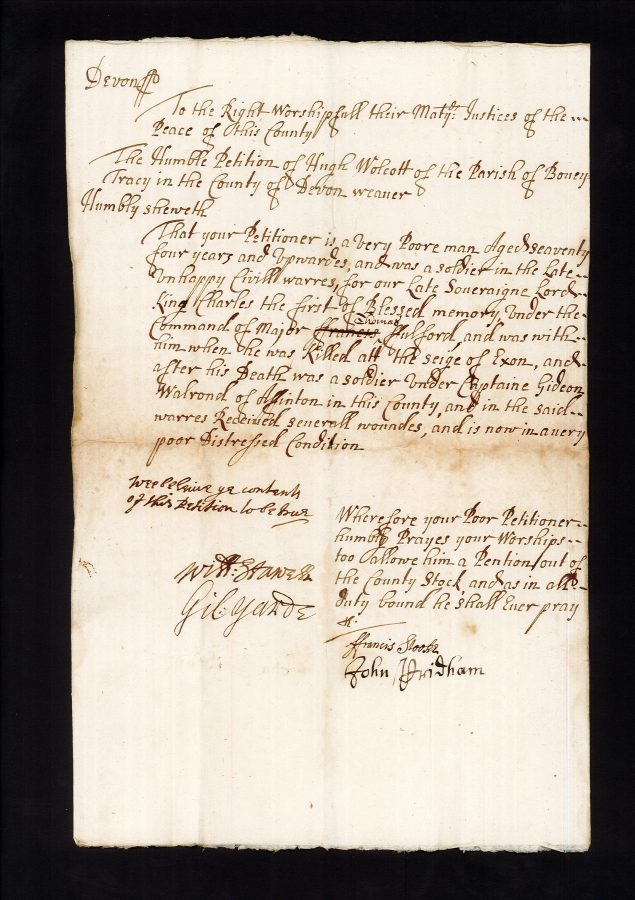 Devon ss
To the Right Worshipfull their Matys: Justices of the
Peace of this County
The Humble Petition of Hugh Wolcott of the Parish of Bovey
Tracy in the County of Devon weaver
Humbly sheweth
That your Petitioner is a very Poore man Aged seaventy
four years and Upwardes, and was a soldier in the Late
Unhappy Civill warres, for our Late Soveraigne Lord
King Charles the first of Blessed memory, Under the
Thomas
Command of Major ffrancis ffulford, and was with
him when he was Killed att the seige of Exon, and
after his Death was a soldier Under Captaine Gideon
Walrond of in this County, and in the said
warres Received severall woundes, and is now in a very
poor Distressed Condition
wee beleive ye contents
of this Petition to be true
Wherefore your Poor Petitioner
humbly Prayes your Worships
too allowe him a Pention out of
the County Stock, and as in all
duty bound he shall Ever pray
&c:
Will: Stawell
Gil Yarde
ffrancis
John